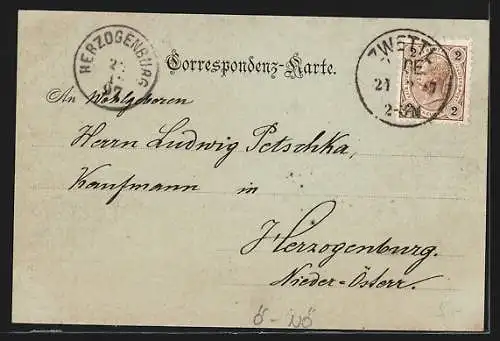 HERZOGENBURG
97
Correspondenz-Karte.
ZWETTL
21 97
2
2
An Wohlgeboren
Herrn Ludwig Petschka,
Kaufmann in
Herzogenburg.
Nieder-Österr.
Ö - NÖ